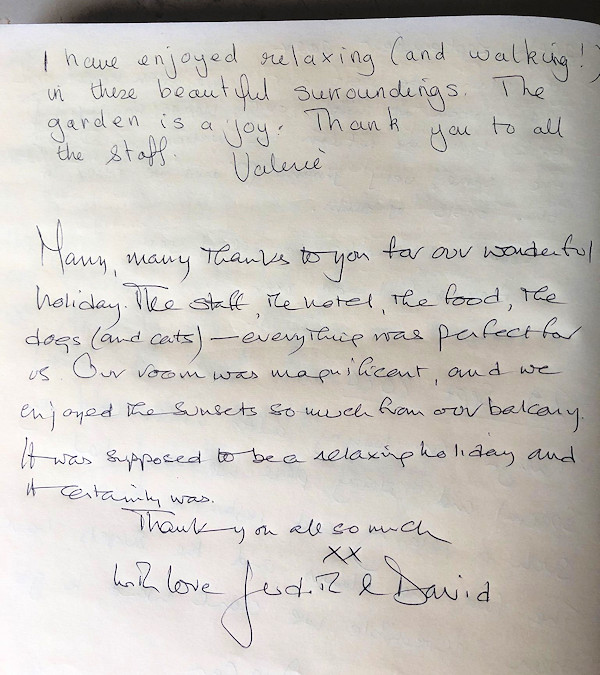 I have enjoyed relaxing (and walking!)
in these beautiful surroundings. The
garden is a joy. Thank you to all
the staff.
Valerie
Many, many thanks to you for our wonderful
holiday. The staff, the hotel, the food, the
dogs (and cats) — everything was perfect for
us. Our room was magnificent, and we
enjoyed the sunsets so much from our balcony.
It was supposed to be a relaxing holiday and
it certainly was.
Thank you all so much
xx
with love Judith & David